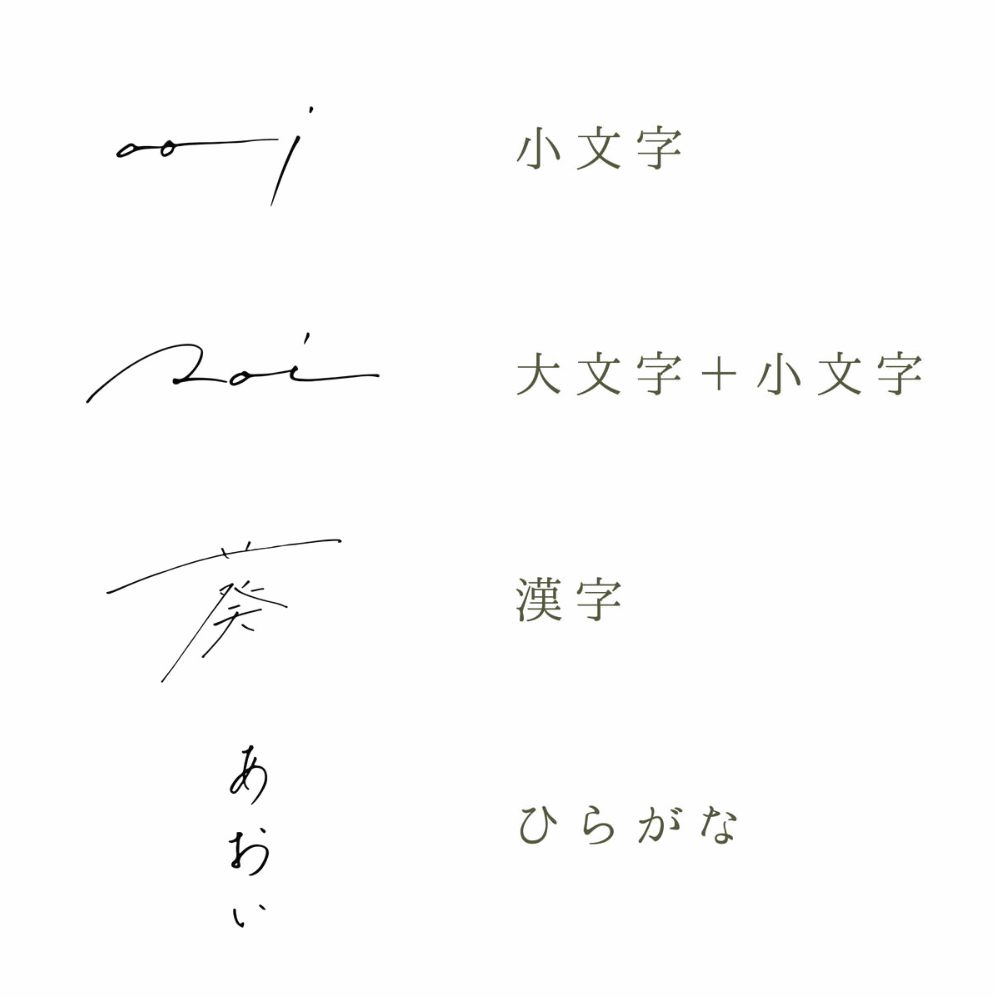 aoi 小文字
Aoi 大文字＋小文字
葵 漢字
あおい ひらがな